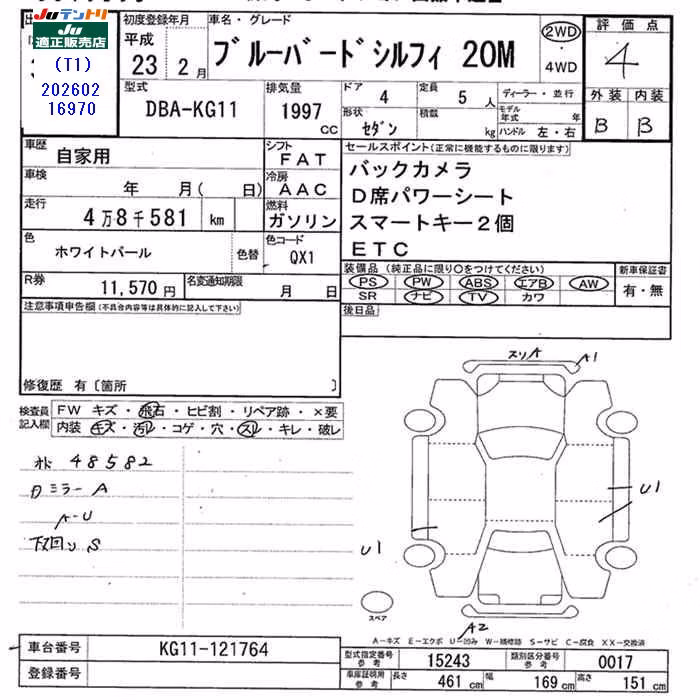 JU テントリ
JU 適正販売店
(T1)
202602
16970
初度登録年月
平成
23 2月
車名・グレード
ブルーバードシルフィ 20M
2WD
・
4WD
評価点
4
外装 内装
B B
型式
DBA-KG11
排気量
1997
CC
ドア 4
定員 5 人
形状 セダン
積載 kg
ディーラー・並行
モデル年式 年
ハンドル 左・右
車歴
自家用
シフト
FAT
車検
年 月( 日)
冷房
AAC
走行
4万8千581 km
燃料
ガソリン
色
ホワイトパール
色替
色コード
QX1
R券
11,570 円
名変通知期限
月 日
セールスポイント(正常に機能するものに限ります)
バックカメラ
D席パワーシート
スマートキー2個
ETC
装備品(純正品に限り○をつけてください)
新車保証書
PS PW ABS エアB AW
SR ナビ TV カワ
有・無
後日品
注意事項申告欄(不具合内容等は具体的に記入して下さい)
修復歴 有〔箇所 〕
検査員
記入欄
FW キズ・飛石・ヒビ割・リペア跡・×要
内装・キズ・汚レ・コゲ・穴・スレ・キレ・破レ
48582
ミラーA
A-U
下回り S
スリA
A1
U1
U1
A2
スペア
A-キズ E-エクボ U-凹み W-補修跡 S-サビ C-腐食 XX-交換済
車台番号
KG11-121764
登録番号
型式指定番号
参考
15243
類別区分番号
参考
0017
車庫証明用
参考
長さ 461 cm
幅 169 cm
高さ 151 cm